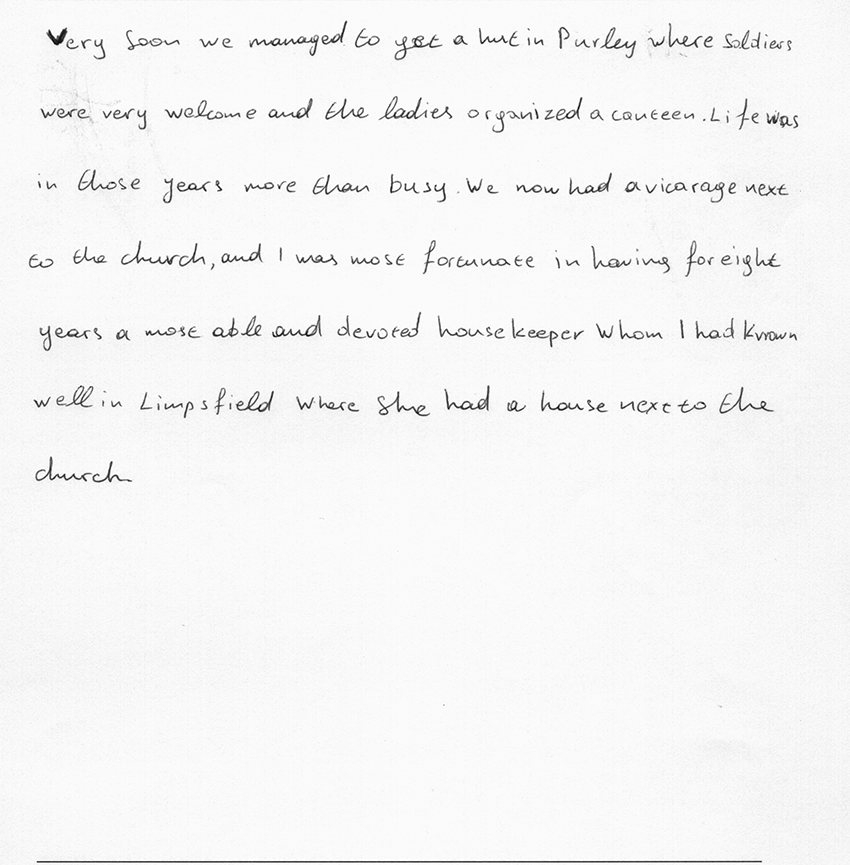 Very soon we managed to get a hut in Purley where soldiers
were very welcome and the ladies organized a canteen. Life was
in those years more than busy. We now had a vicarage next
to the church, and I was most fortunate in having for eight
years a most able and devoted housekeeper whom I had known
well in Limpsfield where she had a house next to the
church